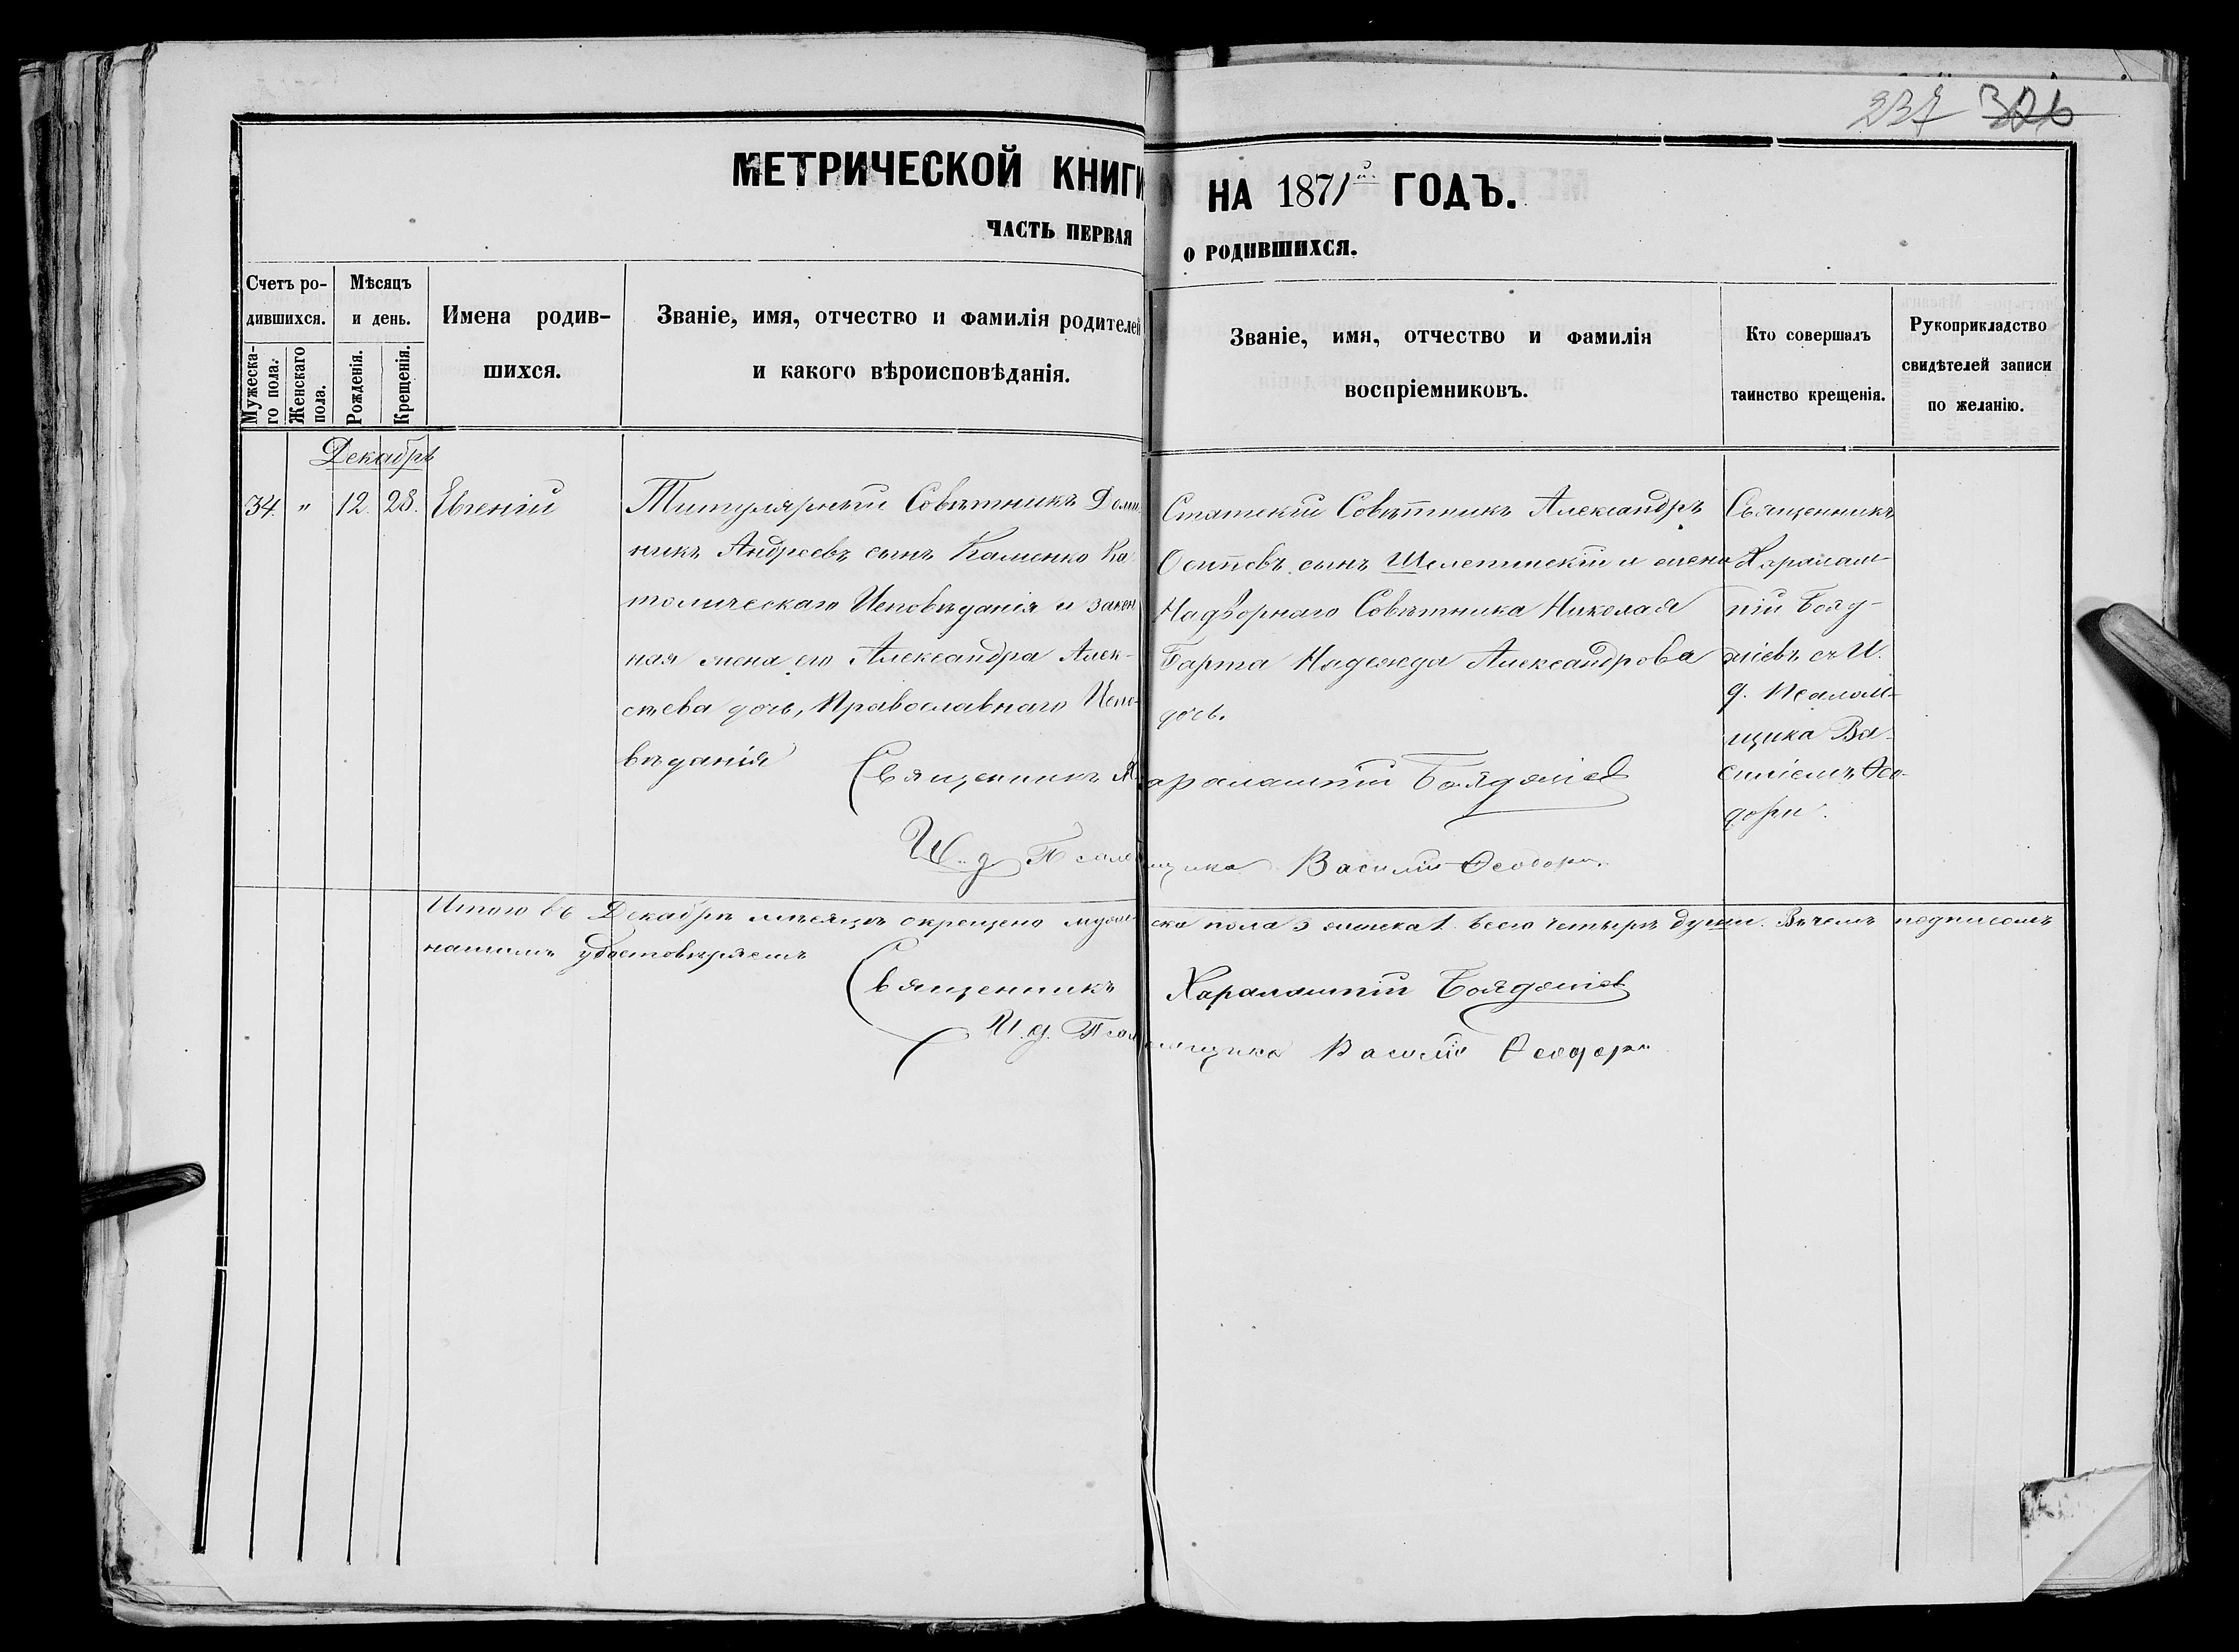 237 326
МЕТРИЧЕСКОЙ КНИГИ НА 1871й ГОДЪ.
ЧАСТЬ ПЕРВАЯ О РОДИВШИХСЯ.
Счетъ ро-
дившихся.
Мужеска-
го пола.
Женскаго
пола.
Мѣсяцъ
и день.
Рожденія.
Крещенія.
Имена родив-
шихся.
Званіе, имя, отчество и фамилія родителей
и какого вѣроисповѣданія.
Званіе, имя, отчество и фамилія
воспріемниковъ.
Кто совершалъ
таинство крещенія.
Рукоприкладство
свидѣтелей записи
по желанію.
Декабрь
34. " 12. 28. Евгеній
Титулярный Совѣтникъ Доми
никъ Андреевъ сынъ Каменко Ка
толическаго Исповѣданія и закон
ная жена его Александра Алек-
сѣева дочь, Православнаго Испо-
вѣданія
Статскій Совѣтникъ Александръ
Осиповъ сынъ и жена
Надворнаго Совѣтника Николая
Барта Надежда Александрова
дочь.
Священникъ
Харалам-
пій Бояд-
жіевъ съ И.
д. Псалом-
щика Ва-
силіемъ Ѳео-
дори.
Священникъ Харалампій Бояджіев
И. д. Псаломщика Василій Ѳеодори.
Итого въ Декабрѣ мѣсяцѣ окрещено мужеска пола 3 женска 1. всего четыре души. Въ чемъ подписомъ
нашимъ удостовѣряемъ
Священникъ Харалампій Бояджіев
И. д. Псаломщика Василій Ѳеодори